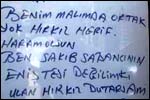 BENİM MALIMDA ORTAK
YOK HIRKIZ HERİF.
HARAMOLSUN
BEN SAKIB SABANCININ
ENİŞTESİ DEĞİLİMKİ
ULAN HIRKIZ DUTARSAM